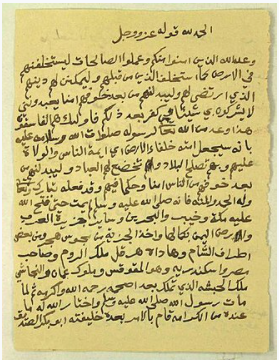 الحمد لله قوله عز وجل
وعد الله الذين امنوا منكم وعملوا الصالحات ليستخلفنهم
في الارض كما استخلف الذين من قبلهم وليمكنن لهم دينهم
الذي ارتضى لهم وليبدلنهم من بعد خوفهم امنا يعبدونني
لا يشركون بي شيئا ومن كفر بعد ذلك فاولئك هم الفاسقون
هذا وعد من الله تعالى لرسوله صلوات الله وسلامه عليه
بانه سيجعل امته خلفاء الارض اي ائمة الناس والولاة
عليهم وبهم تصلح البلاد وتخضع لهم العباد وليبدلنهم من
بعد خوفهم من الناس امنا وحكما فيهم وقد فعله تبارك وتعالى
وله الحمد والمنة فانه صلى الله عليه وسلم لم يمت حتى فتح الله
عليه مكة وخيبر والبحرين وسائر جزيرة العرب
وارض اليمن بكمالها واخذ الجزية من مجوس هجر ومن بعض
اطراف الشام وهاداه هرقل ملك الروم وصاحب
مصر واسكندرية وهو المقوقس وملوك عمان والنجاشي
ملك الحبشة الذي تملك بعد اصحمة رحمه الله واكرمه ثم لما
مات رسول الله صلى الله عليه وسلم واختار الله له ما
عنده من الكرامة قام بالامر بعده خليفته ابو بكر الصديق